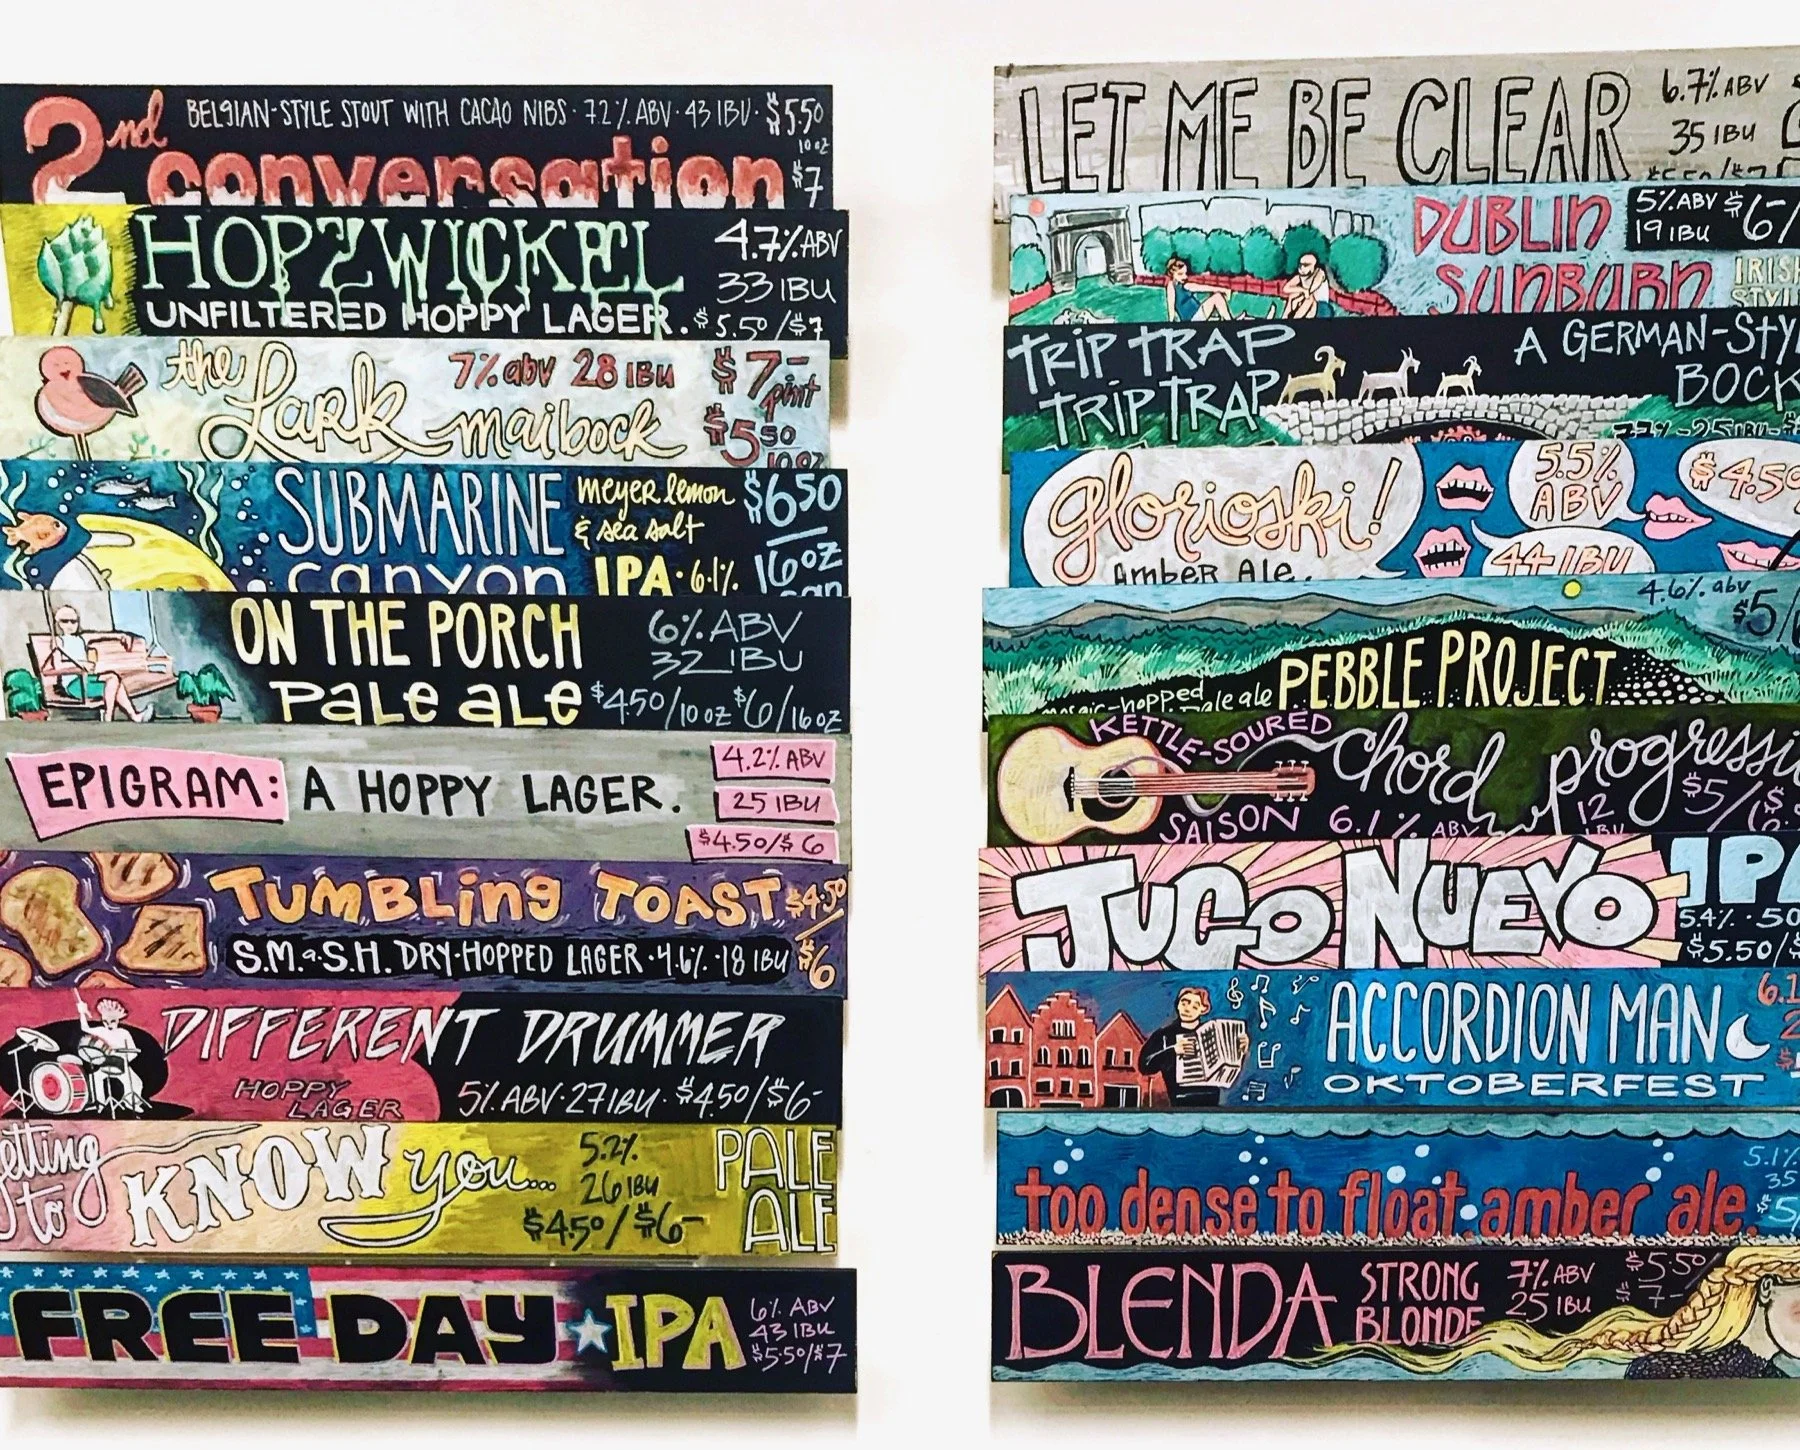 2nd
BELGIAN-STYLE STOUT WITH CACAO NIBS · 7.2% ABV · 43 IBU · $5.50
10 oz
conversation $7
HOPZWICKEL 4.7% ABV
33 IBU
UNFILTERED HOPPY LAGER. $5.50/$7
the Lark maibock
7% abv 28 IBU $7- pint
$5.50 10 oz
SUBMARINE canyon
meyer lemon
& sea salt
IPA · 6.1%
$6.50
16 oz
can
ON THE PORCH 6% ABV
32 IBU
Pale ale $4.50/10 oz $6/16 oz
EPIGRAM: A HOPPY LAGER.
4.2% ABV
25 IBU
$4.50/$6
TUMBLing TOAST $4.50
S.M.a.S.H. DRY-HOPPED LAGER · 4.6% · 18 IBU $6
DIFFERENT DRUMMER
HOPPY
LAGER
5% ABV · 27 IBU · $4.50/$6-
etting
to KNOW you....
5.2%
26 IBU
$4.50/$6-
PALE
ALE
FREE DAY IPA
6% ABV
43 IBU
$5.50/$7
LET ME BE CLEAR
6.7% ABV
35 IBU
DUBLIN
SUNBURN
5% ABV $6-/
19 IBU
TRIP TRAP
TRIP TRAP
A GERMAN-STY
BOCK
7.7% - 25 IBU -
glorioski!
Amber Ale.
5.5%
ABV
$4.50
44 IBU
4.6% abv
$5/
mosaic-hopped
pale ale PEBBLE PROJECT
KETTLE-SOURED
chord progressi
SAISON 6.1% ABV
12
IBU
$5/
JUGO NUEVO IPA
5.4% · 50
$5.50/$
ACCORDION MAN
OKTOBERFEST
6.1
too dense to float. amber ale.
5.1%
35
$5/
BLENDA
STRONG
BLONDE
7% ABV
25 IBU
$5.50/
$7-